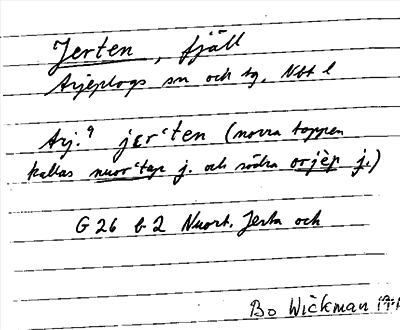 Jerten, fjäll
Arjeplogs sn och tg, Nbt l
Arj. jɛrʻten (norra toppen
kallas nuorʻtap j. och södra orjėp j.)
G 26 b 2 Nuort. Jerta och
Bo Wickman